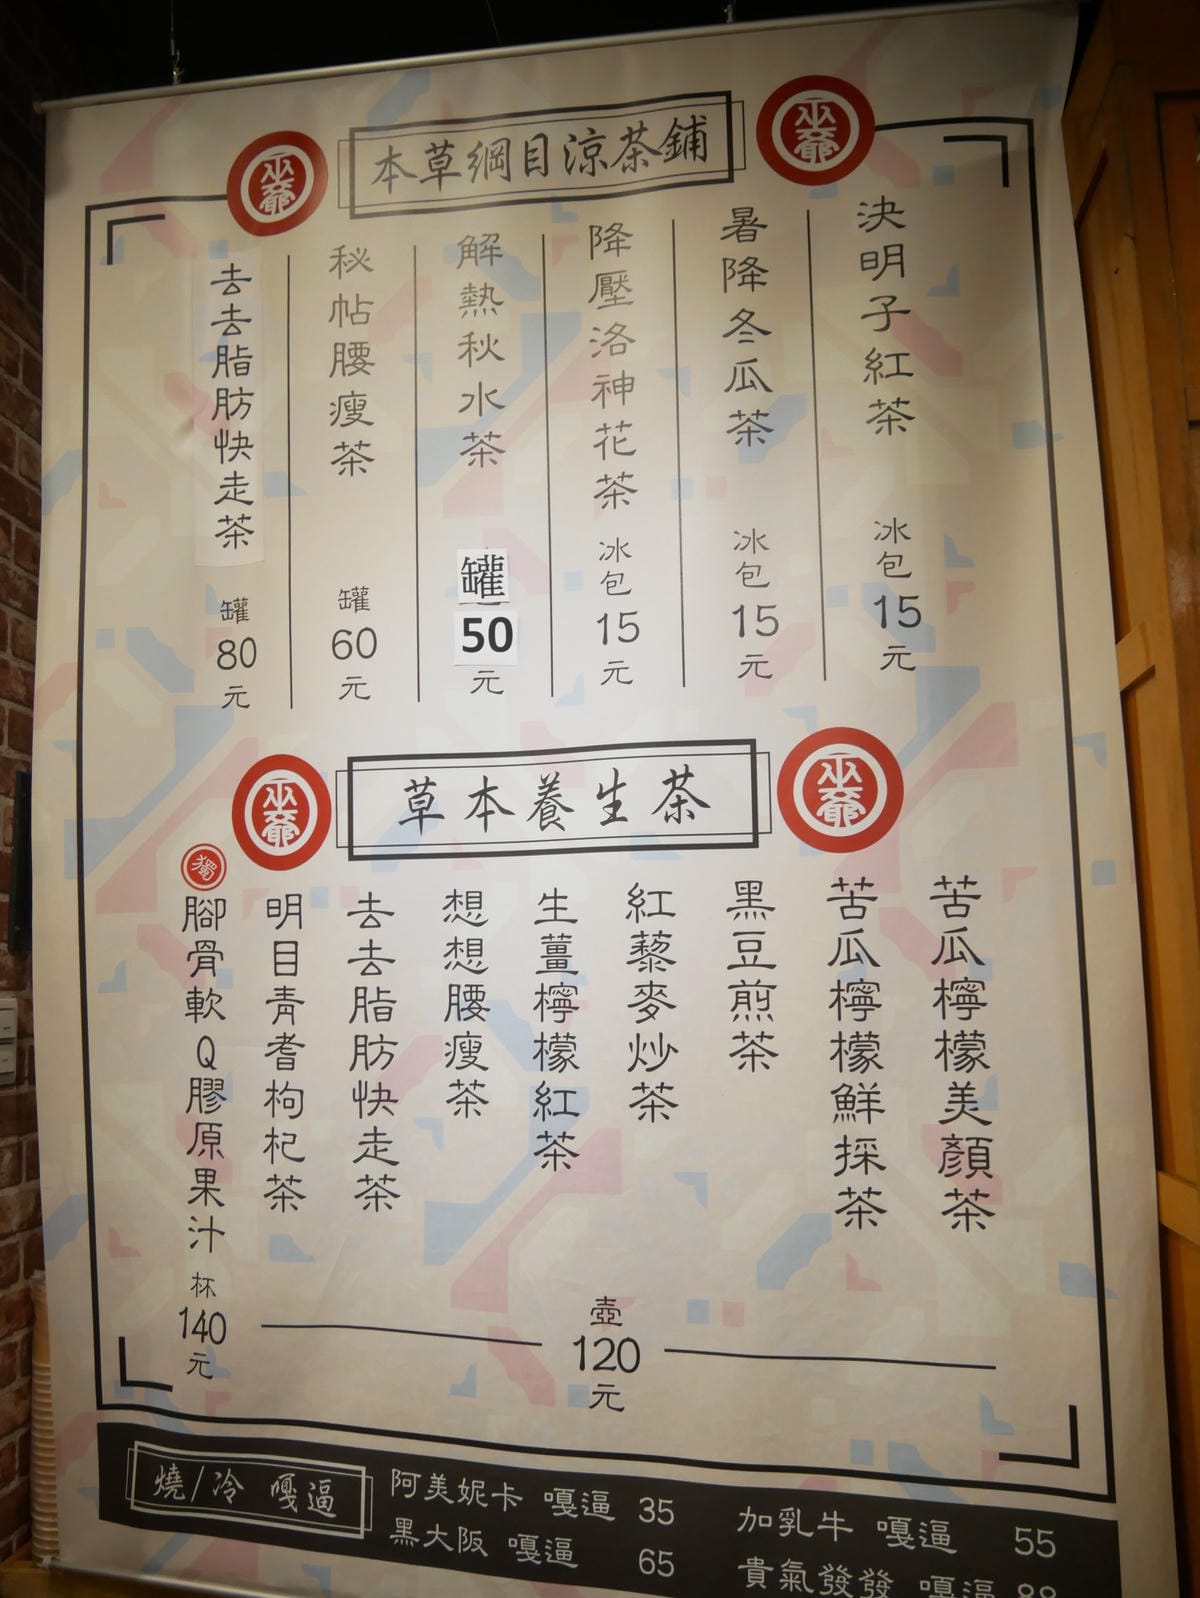 本草綱目涼茶鋪
巫爺
巫爺
決明子紅茶 冰包15元
暑降冬瓜茶 冰包15元
降壓洛神花茶 冰包15元
解熱秋水茶 罐50元
秘帖腰瘦茶 罐60元
去去脂肪快走茶 罐80元
草本養生茶
巫爺
巫爺
苦瓜檸檬美顏茶
苦瓜檸檬鮮採茶
黑豆煎茶
紅藜麥炒茶
生薑檸檬紅茶
想想腰瘦茶
去去脂肪快走茶
明目青耆枸杞茶
壺120元
獨
腳骨軟Q膠原果汁 杯140元
燒/冷 嘎逼
阿美妮卡 嘎逼 35
黑大阪 嘎逼 65
加乳牛 嘎逼 55
貴氣發發 嘎逼 88